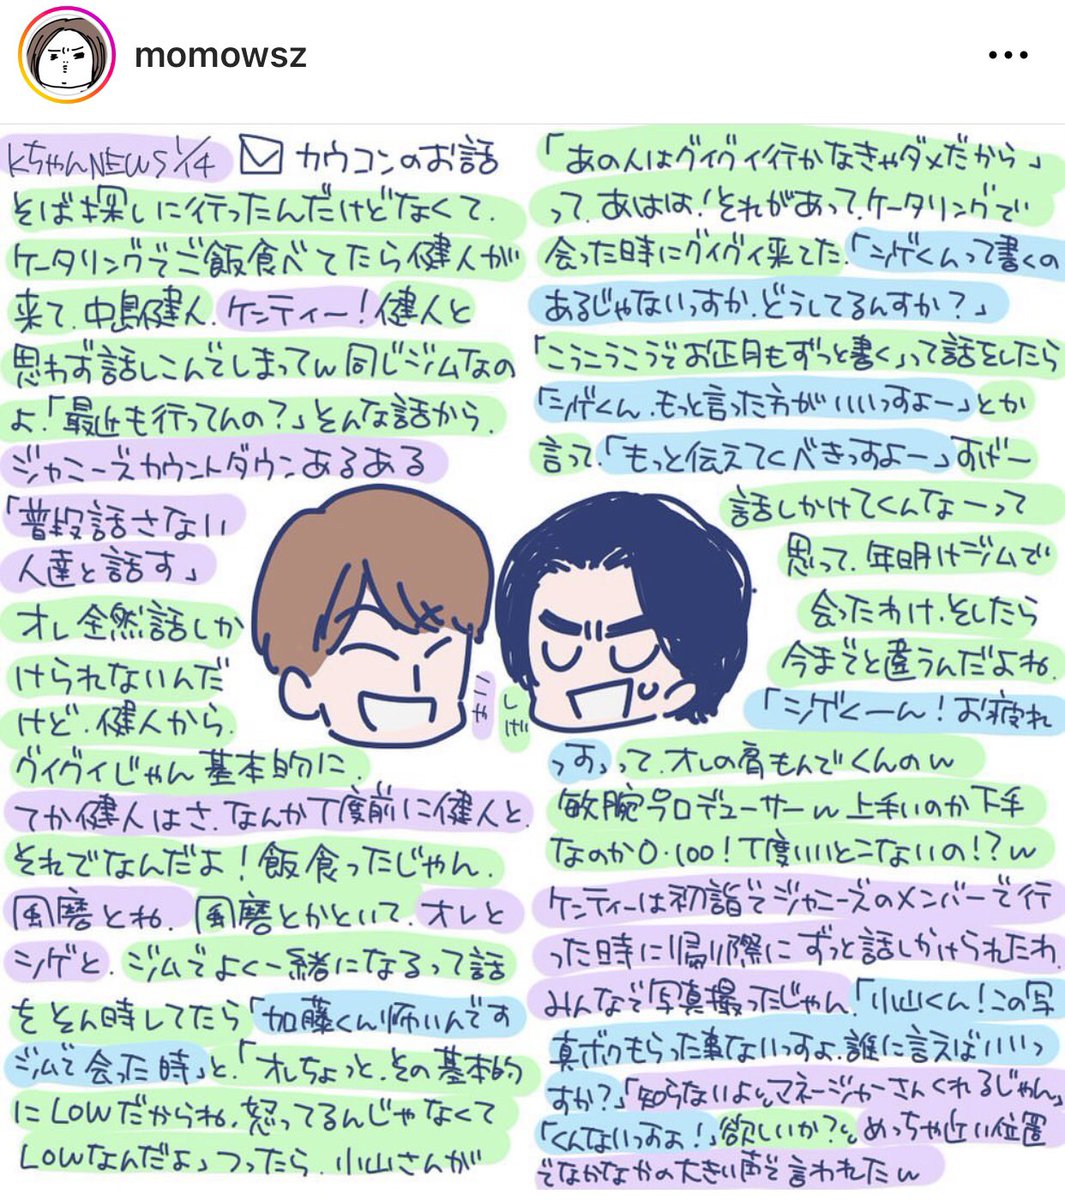 momowsz
KちゃんNEWS 1/14 カウコンのお話
そば探しに行ったんだけどなくて、
ケータリングでご飯食べてたら健人が
来て、中島健人、ケンティー！健人と
思わず話しこんでしまってw 同じジムなの
よ！「最近も行ってんの？」そんな話から、
ジャニーズカウントダウンあるある
「普段話さない
人達と話す」
オレ全然話しか
けられないんだ
けど、健人から、
グイグイじゃん 基本的に、
てか健人はさ、なんか丁度前に健人と、
それでなんだよ！飯食ったじゃん、
風磨とね、風磨とかといて、オレと
シゲと、ジムでよく一緒になるって話
をそん時してたら「加藤くん怖いんです
ジムで会った時」と、「オレちょっと、その基本的
にLOWだからね、怒ってるんじゃなくて
LOWなんだよ」つったら、小山さんが
こや
しげ
「あの人はグイグイ行かなきゃダメだから」
って、あはは！それがあって、ケータリングで
会った時にグイグイ来てた、「シゲくんって書くの
あるじゃないっすか、どうしてるんすか？」
「こうこうこうでお正月もずっと書く」って話をしたら
「シゲくん、もっと言った方がいいっすよー」とか
言って、「もっと伝えてくべきっすよー」すげー
話しかけてくんなーって
思って、年明けジムで
会ったわけ、そしたら
今までと違うんだよね、
「シゲくーん！お疲れ
っす」って、オレの肩もんでくんのw
敏腕プロデューサーw 上手いのか下手
なのか0・100！丁度いいとこないの！？w
ケンティーは初詣でジャニーズのメンバーで行
った時に帰り際にずっと話しかけられたわ、
みんなで写真撮ったじゃん、「小山くん！この写
真ボクもらった事ないっすよ、誰に言えばいいっ
すか？」「知らないよ」と、マネージャーさんくれるじゃん」
「くんないっすよ！」欲しいか？と、めっちゃ近い位置
でなかなかの大きい声で言われたw